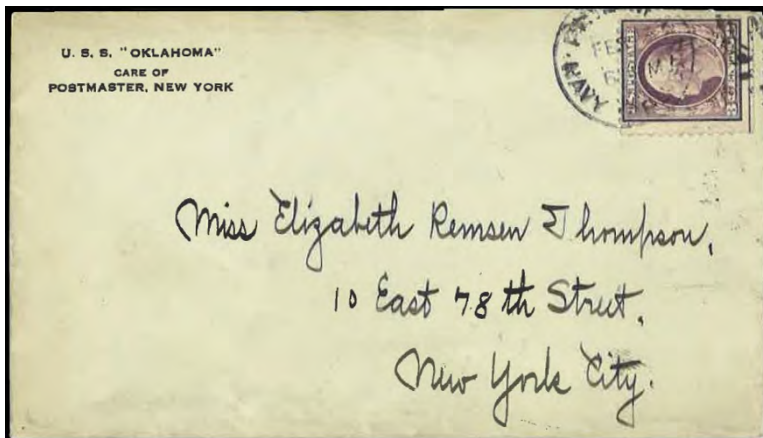 U. S. S. "OKLAHOMA"
CARE OF
POSTMASTER, NEW YORK
FEB
NAVY
U.S. POSTAGE
Miss Elizabeth Remsen Thompson,
10 East 78th Street,
New York City.